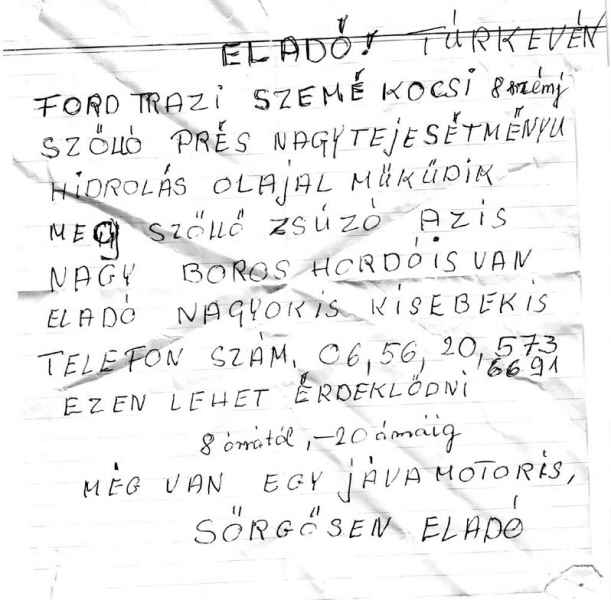 ELADÓ! TÚRKEVÉN
FORD TRAZI SZEMÉ KOCSI 8 szémj
SZŐLLŐ PRÉS NAGYTEJESÉTMÉNYU
HIDROLÁS OLAJAL MŰKŰDIK
MEG SZŐLLŐ ZSÚZÓ AZIS
NAGY BOROS HORDÓIS VAN
ELADÓ NAGYOKIS KISEBEKIS
TELEFON SZÁM, 06, 56, 20, 573
6691
EZEN LEHET ÉRDEKLŐDNI
8 órrától, -20 ómáig
MÉG VAN EGY JÁVA MOTORIS,
SŐRGŐSEN ELADÓ